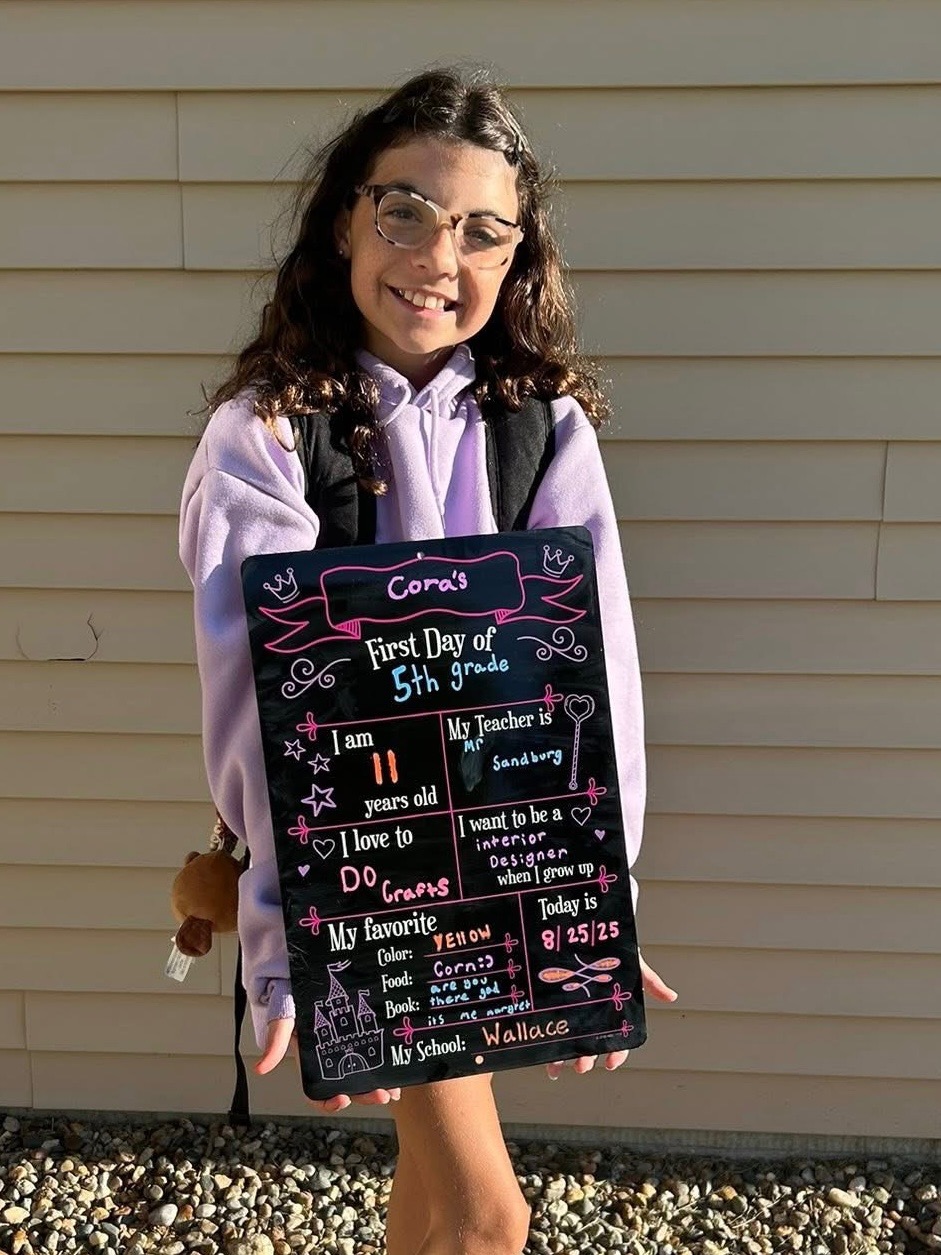 Cora's
First Day of
5th grade
I am
11
years old
My Teacher is
Mr
Sandburg
I love to
DO
Crafts
I want to be a
interior
Designer
when I grow up
My favorite
Color: YEllOW
Food: Corn:)
Book: are you
there god
its me margret
Today is
8/25/25
My School: Wallace